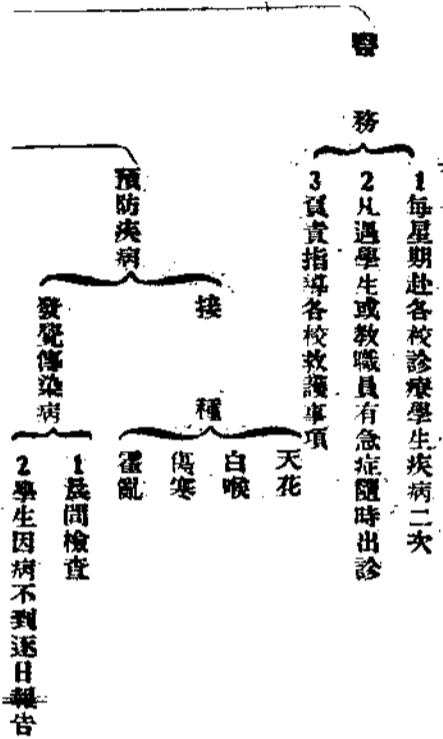 醫務
1每星期赴各校診療學生疾病二次
2凡遇學生或教職員有急症隨時出診
3負責指導各校救護事項
預防疾病
接種
天花
白喉
傷寒
霍亂
發覺傳染病
1晨間檢查
2學生因病不到逐日報告